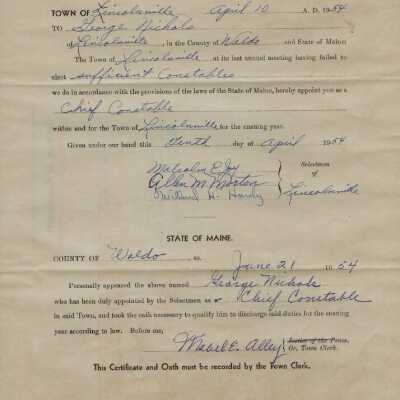 TOWN OF Lincolnville April 10 A. D. 1954
TO George Nichols
of Lincolnville, in the County of Waldo and State of Maine:
The Town of Lincolnville, at its last annual meeting having failed to
elect sufficient Constables
we do in accordance with the provisions of the laws of the State of Maine, hereby appoint you as a
Chief Constable
within and for the Town of Lincolnville for the ensuing year.
Given under our hand this tenth day of April 1954
Malcolm E.
Allen M Morton
H. Hardy
Selectmen
of
Lincolnville
STATE OF MAINE.
COUNTY OF Waldo ss. June 21 1954
Personally appeared the above named George Nichols
who has been duly appointed by the Selectmen as a Chief Constable
in said Town, and took the oath necessary to qualify him to discharge said duties for the ensuing
year according to law. Before me,
Mabel E. Alley
Justice of the Peace.
Or, Town Clerk.
This Certificate and Oath must be recorded by the Town Clerk.